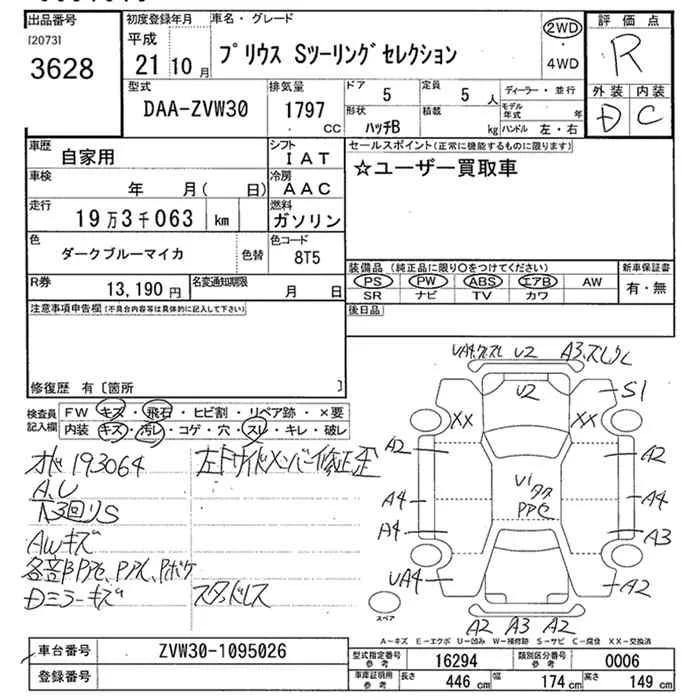 出品番号
[2073]
3628
初度登録年月
平成
21 10 月
車名・グレード
プリウス Sツーリングセレクション
2WD
・
4WD
評価点
R
外装 内装
D C
型式
DAA-ZVW30
排気量
1797
CC
ドア
5
定員
5 人
ディーラー・並行
形状
ハッチB
積載
kg
モデル年式 年
ハンドル 左・右
車歴
自家用
シフト
IAT
車検
年 月( 日)
冷房
AAC
走行
19万3千063 km
燃料
ガソリン
色
ダークブルーマイカ
色替
色コード
8T5
R券
13,190 円
名変通知期限
月 日
セールスポイント(正常に機能するものに限ります)
☆ユーザー買取車
装備品 (純正品に限り○をつけてください)
新車保証書
PS PW ABS エアB AW
SR ナビ TV カワ
有・無
後日品
注意事項申告欄(不具合内容等は具体的に記入して下さい)
修復歴 有〔箇所 〕
検査員
記入欄
FW キズ・飛石・ヒビ割・リペア跡・×要
内装 キズ・汚レ・コゲ・穴・スレ・キレ・破レ
193064
左 サイドメンバー修正歪
AWキズ
各部PPC、
Dミラーキズ
スタッドレス
U2 A3.
U2
S1
XX XX
A2 A2
U1
PPC
A4 A4
A4 A3
UA4 A2
スペア
A2 A3 A2
A-キズ E-エクボ U-凹み W-補修跡 S-サビ C-腐食 XX-交換済
車台番号
ZVW30-1095026
登録番号
型式指定番号
参考
16294
類別区分番号
参考
0006
車庫証明用
参考
長さ 446 cm 幅 174 cm 高さ 149 cm